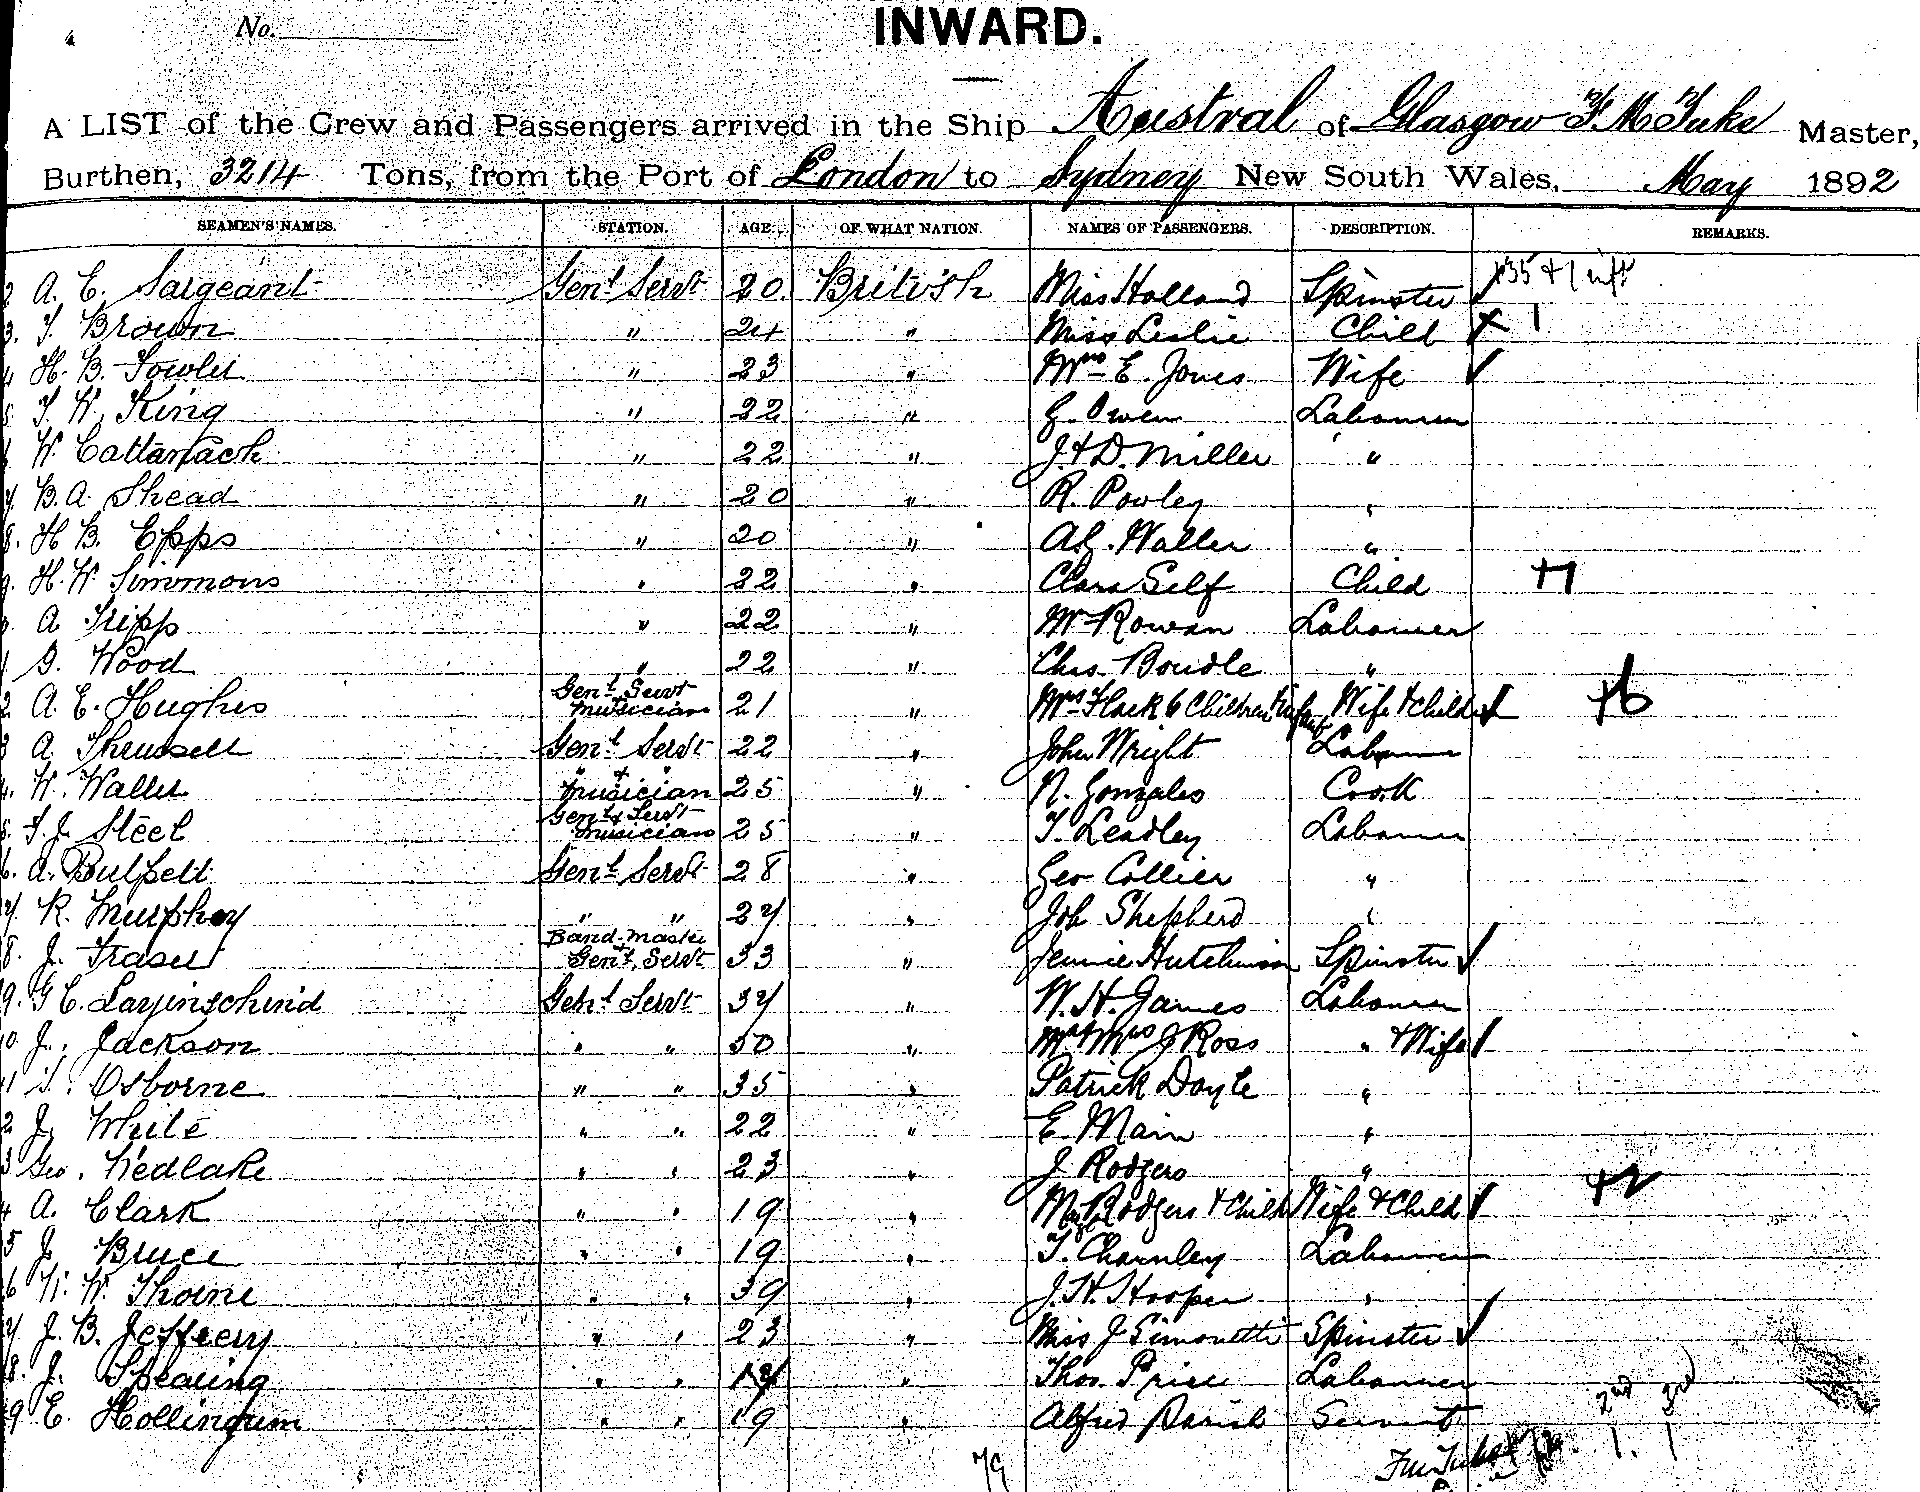 4 No.
INWARD.
A LIST of the Crew and Passengers arrived in the Ship Austral of Glasgow Master,
Burthen, 3214 Tons, from the Port of London to Sydney New South Wales, May 1892
SEAMEN'S NAMES. STATION. AGE. OF WHAT NATION. NAMES OF PASSENGERS. DESCRIPTION. REMARKS.
2 A. E. Sargeant Genl Servt 20 British Miss Holland Spinster
3. T. Brown " 24 " Miss Leslie Child + 1
4 H. B. Fowler " 23 " Mrs E. Jones Wife
5 T. W. King " 22 " G. Owen Labourer
W. Cattanach " 22 " J. & D. Miller "
7 B. A. Shead " 20 " R. Powley "
8. H. B. Epps " 20 " Waller "
9. H. W. Simmons " 22 " Clara Self Child +1
A Tripp " 22 " Mr Rowan Labourer
1 G. Wood " 22 " Chas. Boudle "
2 A. E. Hughes Genl Servt musician 21 " Mrs Flack 6 Children + infant Wife & Child +6
3 A. Thrussell Genl Servt 22 " John Wright Labourer
4. W. Waller " + " musician 25 " N. Gonzales Cook
5. T. J. Steel Genl & Servt musician 25 " T. Leadley Labourer
6. A. Bulpett Genl Servt 28 " Geo Collier "
7. R. Murphey " " 27 " Job Shepherd "
8. J. Fraser Band Master + Genl. Servt 33 " Jennie Hutchinson Spinster
9. G C. Genl Servt 37 " W. H. James Labourer
0 J. Jackson " " 30 " Mr & Mrs J Ross " & Wife
1 S. Osborne " " 35 " Patrick Doyle "
2 J. White " " 22 " E. Main "
3 Geo. Wedlake " " 23 " J Rodgers "
4 A. Clark " " 19 " Rodgers & Child Wife & Child +2
5 J. Bruce " " 19 " T. Charnley Labourer
6 W. W. Thorne " " 39 " J. H. Hooper "
7 J. B. Jeffrery " " 23 " Miss J Simonetti Spinster
8. J. Spearing " " 17 " Thos. Price Labourer
9. E. Hollingum " " 19 " Alfred Parish Servant 2nd 3rd
79 1. 1